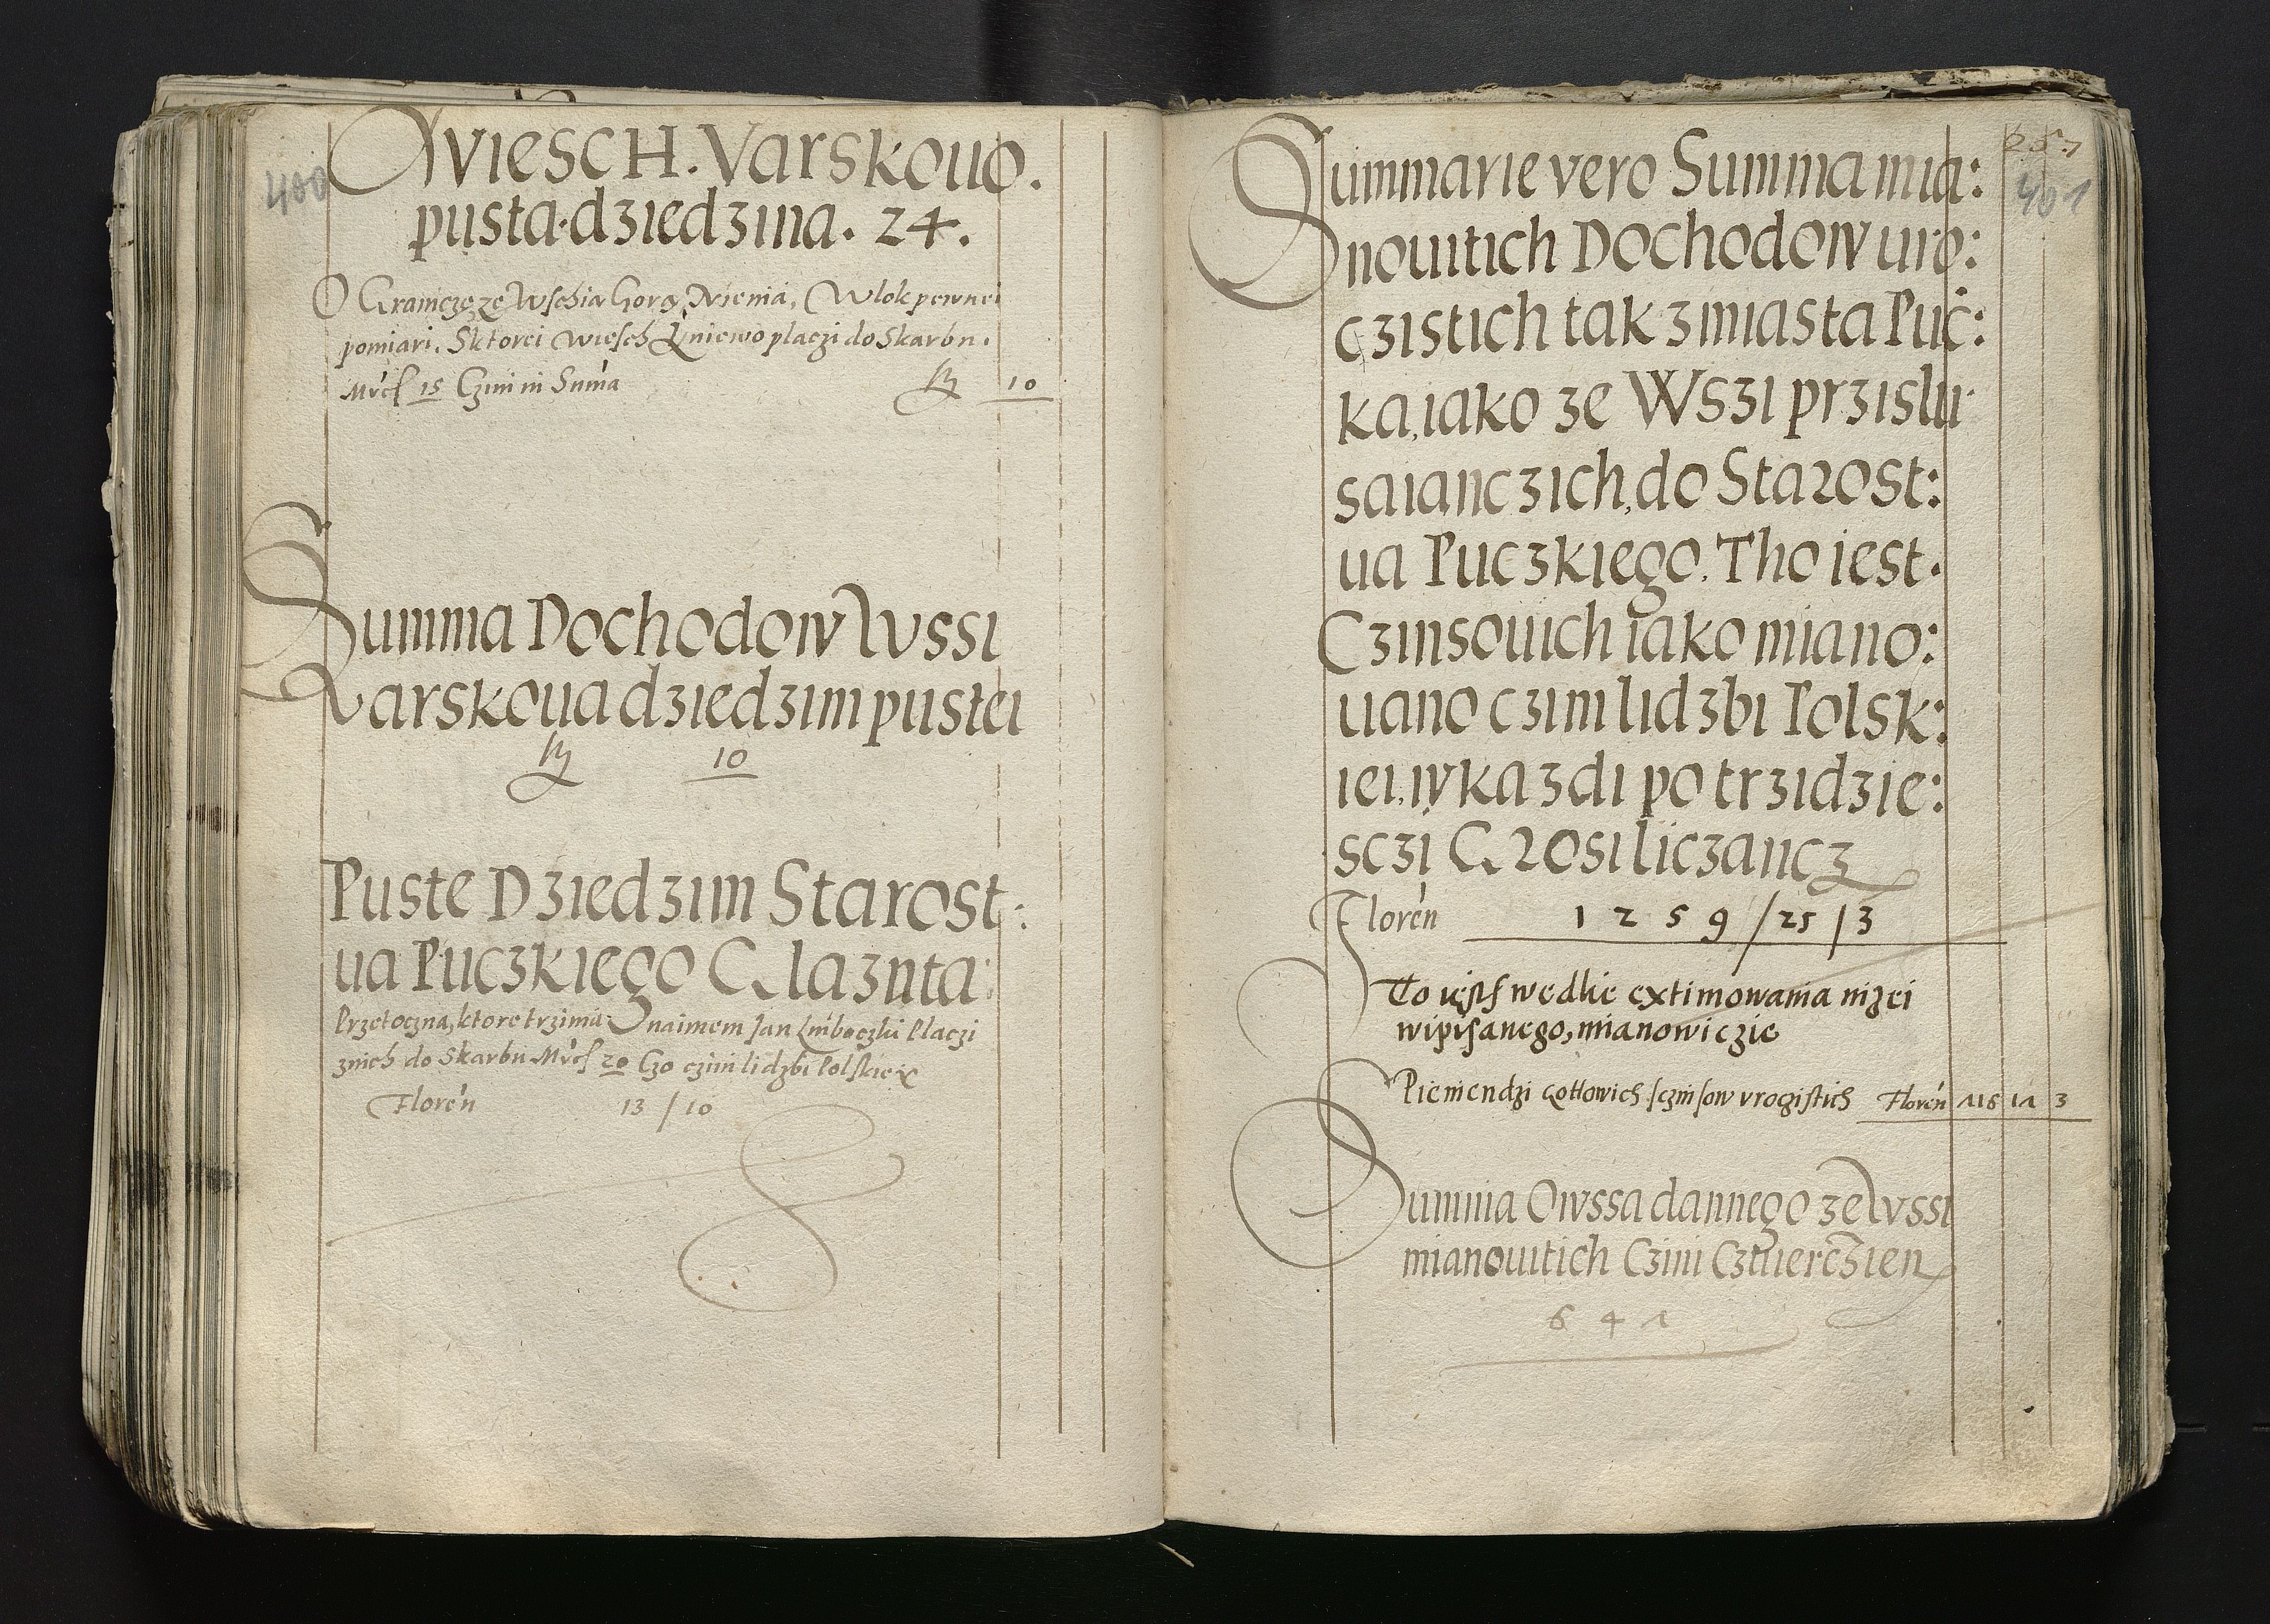 400
WIESCH. Varskouo.
pusta. dziedzina. 24.
O Graniczę ze Wschia Gorą, Nienia, Wlok pewnei
pomiari. Sktorei Wiesch Zniewo placzi do Skarbu.
Mrcſ 15 Czini in Suma 10
Summa Dochodow Wssi
Varskoua dziedzini pustei
10
Puste Dziedzini Starost:
ua Puczkiego Glaznta:
Przetoczna, ktore trzima Znaimem Jan placzi
znich do Skarbu Mrcſ 20 Czo czini lidzbi Polskiei
Floren 13 / 10
401
Summarie vero Summa mia:
nouitich Dochodow uro:
czistich tak z miasta Puc:
ka, iako ze Wszi przislu
saianczich, do Starost:
ua Puczkiego. Tho iest.
Czinsouich iako miano:
uano czini lidzbi Polsk:
iei, w kazdi po trzidzie:
sczi Grosi liczancz
Floren 1259 / 25 / 3
To iest wedlie extimowania nizei
wipisanego, mianowiczie
Pieniendzi gottowich sczinsow vrozistich Floren 116 11 3
Summa Owssa dannego ze Wssi
mianouitich Czini Cztuierczien
641